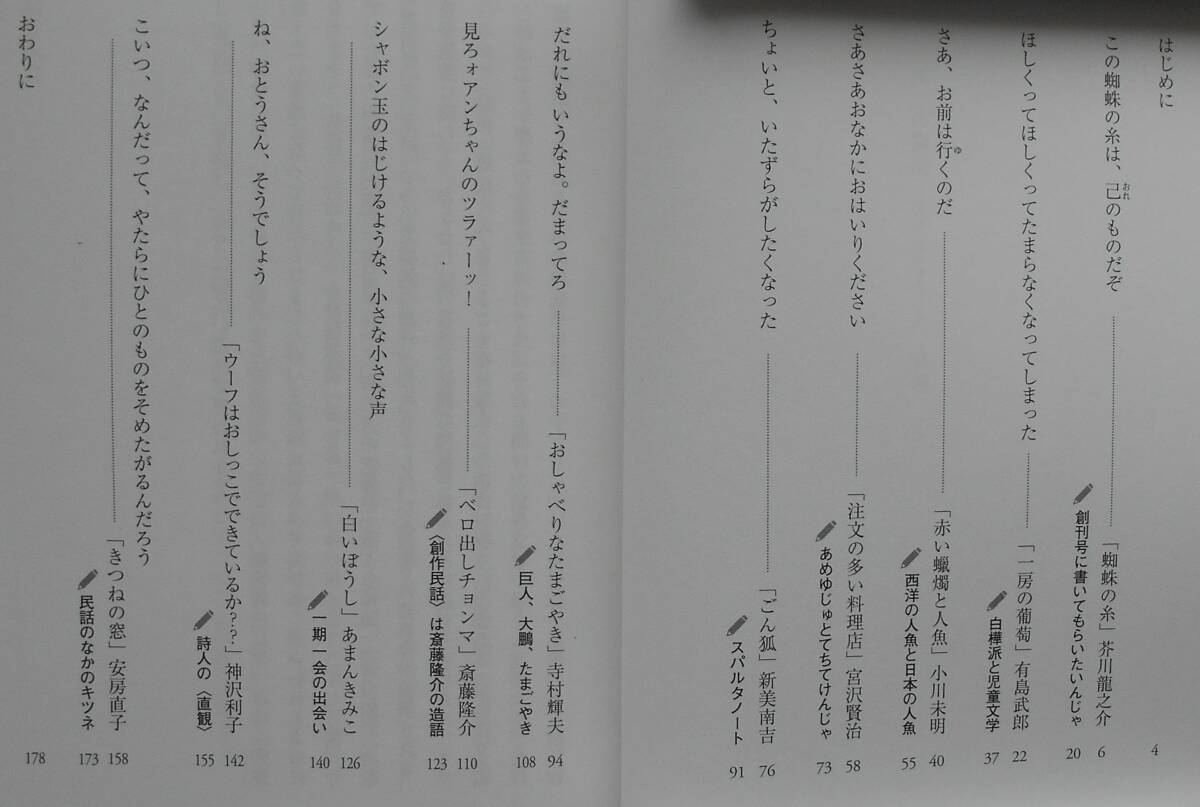 はじめに 4
この蜘蛛の糸は、己のものだぞ 「蜘蛛の糸」芥川龍之介 6
おれ
創刊号に書いてもらいたいんじゃ 20
ほしくってほしくってたまらなくなってしまった 「一房の葡萄」有島武郎 22
白樺派と児童文学 37
さあ、お前は行くのだ 「赤い蠟燭と人魚」小川未明 40
ゆ
西洋の人魚と日本の人魚 55
さあさあおなかにおはいりください 「注文の多い料理店」宮沢賢治 58
あめゆじゅとてちてけんじゃ 73
ちょいと、いたずらがしたくなった 「ごん狐」新美南吉 76
スパルタノート 91
だれにも いうなよ。だまってろ 「おしゃべりなたまごやき」寺村輝夫 94
巨人、大鵬、たまごやき 108
見ろォアンちゃんのツラァーッ! 「ベロ出しチョンマ」斎藤隆介 110
〈創作民話〉は斎藤隆介の造語 123
シャボン玉のはじけるような、小さな小さな声
「白いぼうし」あまんきみこ 126
一期一会の出会い 140
ね、おとうさん、そうでしょう
「ウーフはおしっこでできているか??」神沢利子 142
詩人の〈直観〉 155
こいつ、なんだって、やたらにひとのものをそめたがるんだろう
「きつねの窓」安房直子 158
民話のなかのキツネ 173
おわりに 178